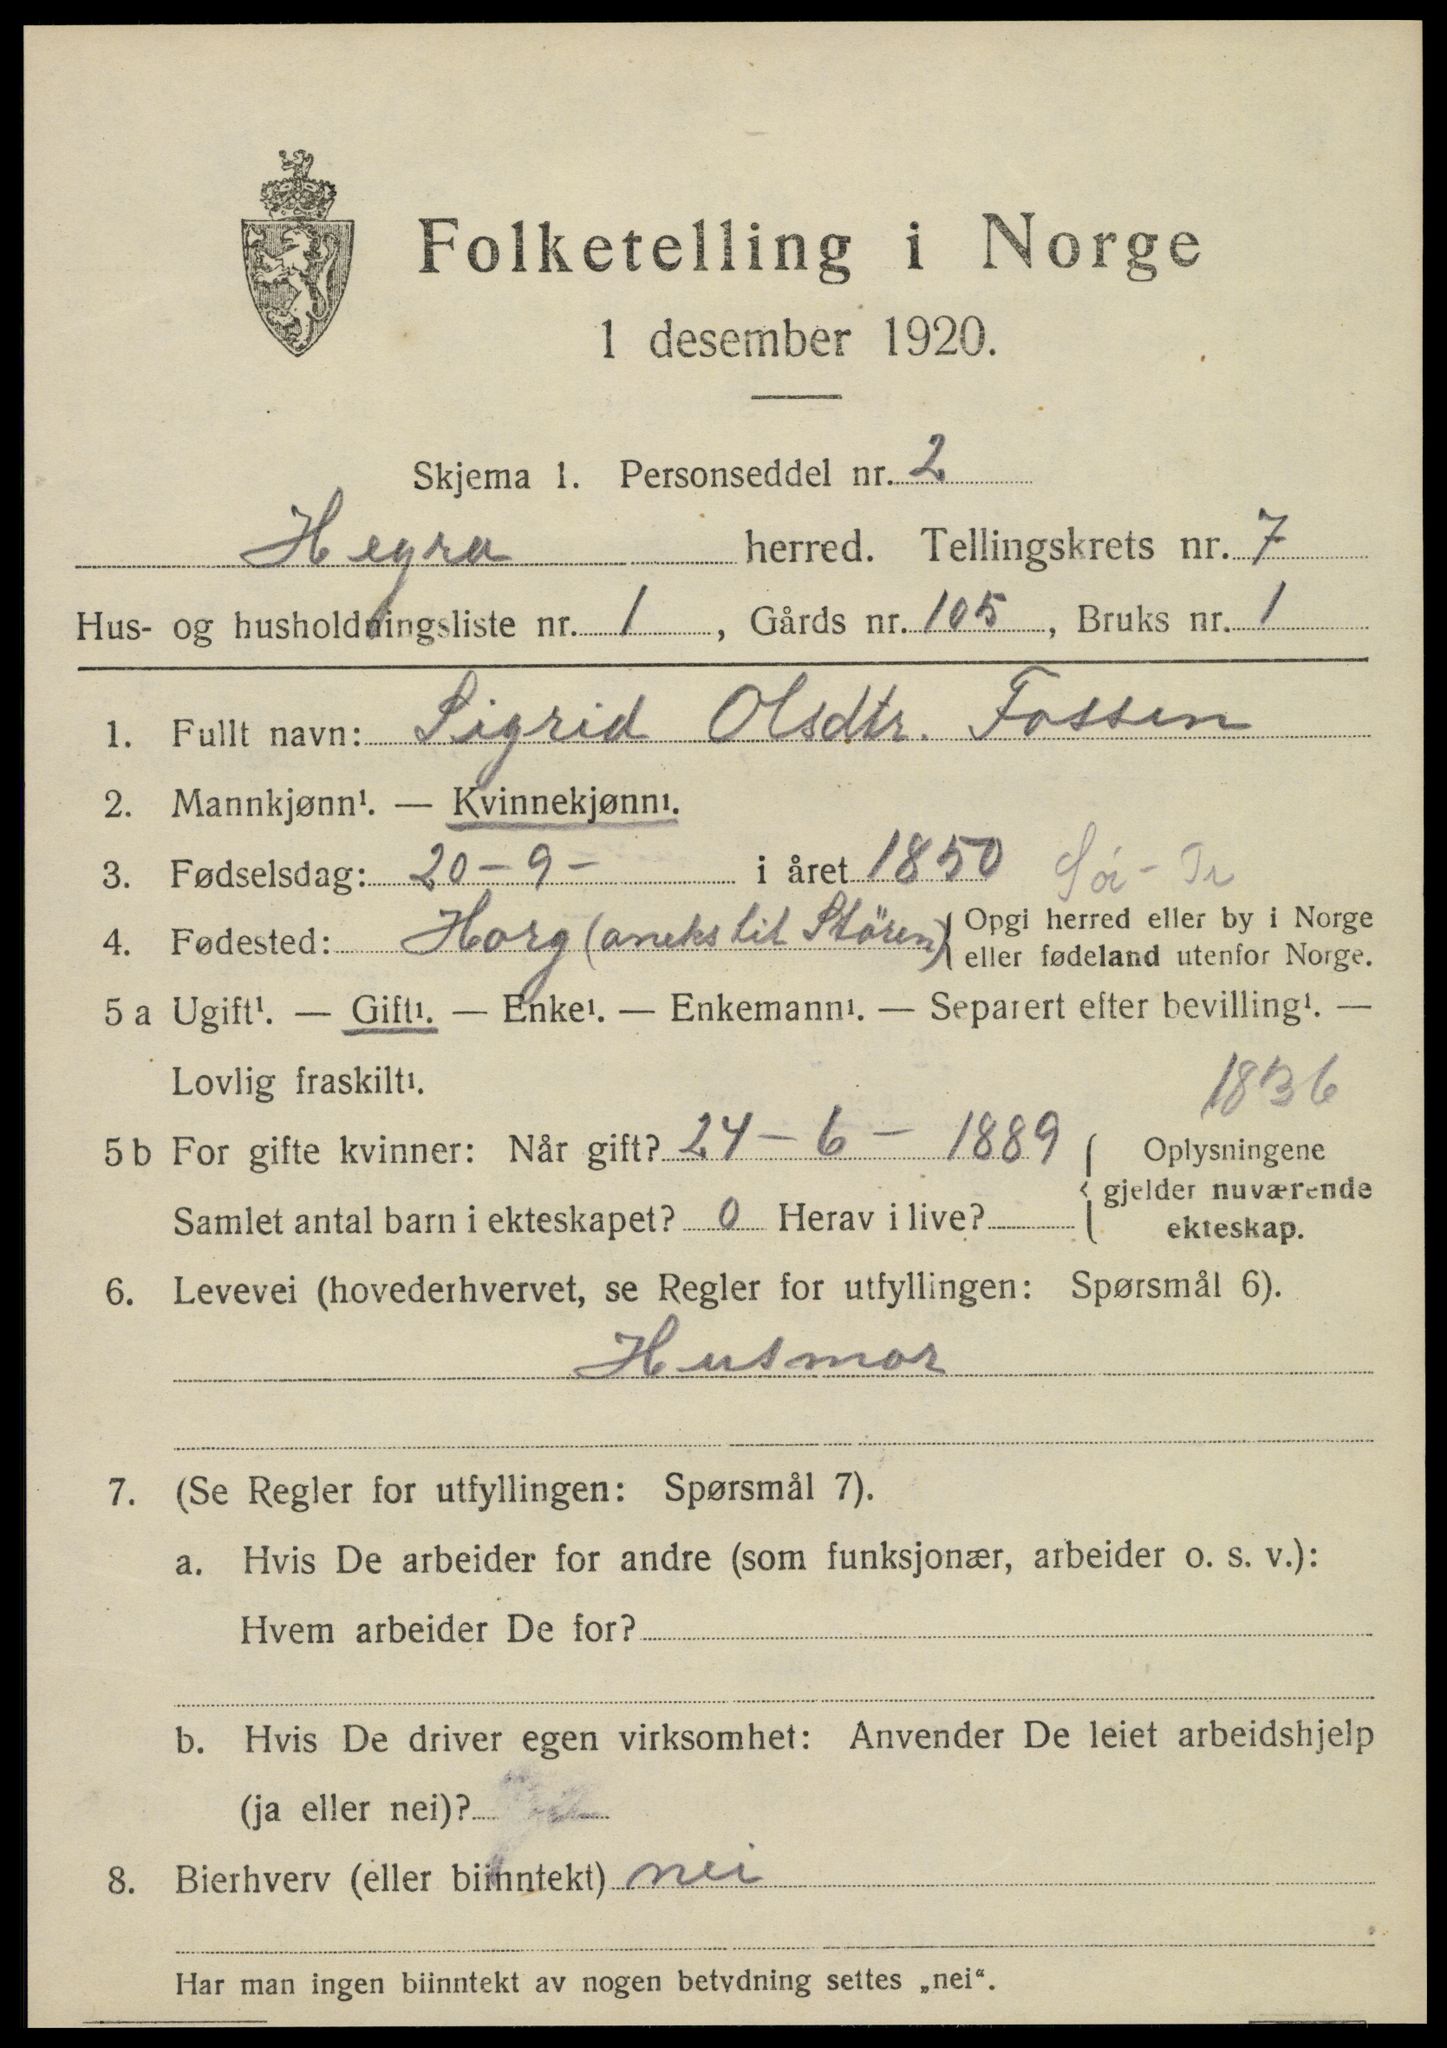 Folketelling i Norge
1 desember 1920.
Skjema 1. Personseddel nr. 2
Hegra herred. Tellingskrets nr. 7
Hus- og husholdningsliste nr. 1, Gårds nr. 105, Bruks nr. 1
1. Fullt navn: Sigrid Olsdtr. Fossen
2. Mannkjønn¹. — Kvinnekjønn¹.
3. Fødselsdag: 20-9- i året 1850 Sör-Tr
4. Fødested: Horg (aneks til Stören) Opgi herred eller by i Norge
eller fødeland utenfor Norge.
5 a Ugift¹. — Gift¹. — Enke¹. — Enkemann¹. — Separert efter bevilling¹. —
Lovlig fraskilt¹.
1836
5 b For gifte kvinner: Når gift? 24-6-1889 Oplysningene
gjelder nuværende
Samlet antal barn i ekteskapet? 0 Herav i live?
ekteskap.
6. Levevei (hovederhvervet, se Regler for utfyllingen: Spørsmål 6).
Husmor
7. (Se Regler for utfyllingen: Spørsmål 7).
a. Hvis De arbeider for andre (som funksjonær, arbeider o. s. v.):
Hvem arbeider De for?
b. Hvis De driver egen virksomhet: Anvender De leiet arbeidshjelp
(ja eller nei)?
8. Bierhverv (eller biinntekt) nei
Har man ingen biinntekt av nogen betydning settes „nei“.